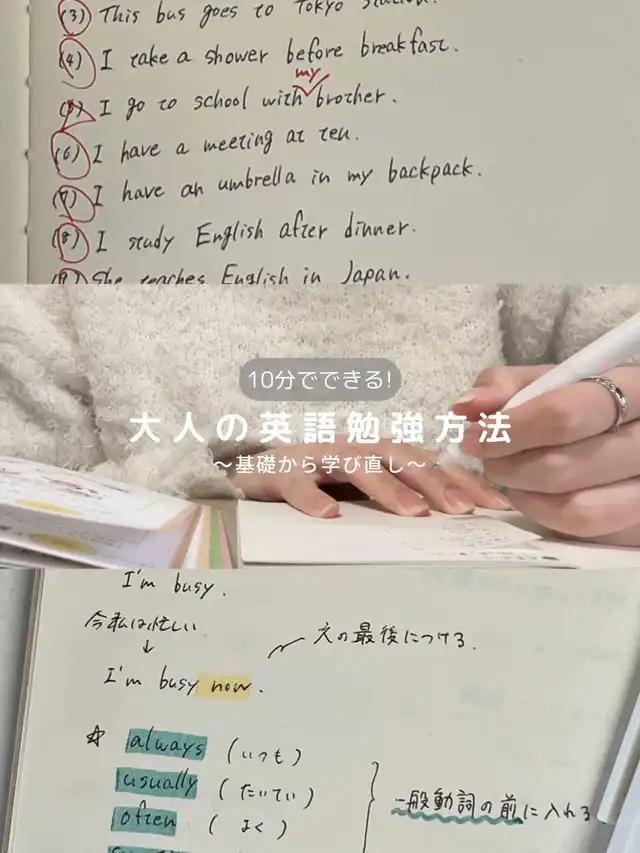 (3) This bus goes to Tokyo Station.
(4) I take a shower before breakfast.
my
(5) I go to school with brother.
(6) I have a meeting at ten.
(7) I have an umbrella in my backpack.
(8) I study English after dinner.
(9) She teaches English in Japan.
10分でできる!
大人の英語勉強方法
〜基礎から学び直し〜
I'm busy.
今私は忙しい
↓
文の最後につける.
I'm busy now.
☆ always (いつも)
usually (たいてい)
often (よく)
一般動詞の前に入れる